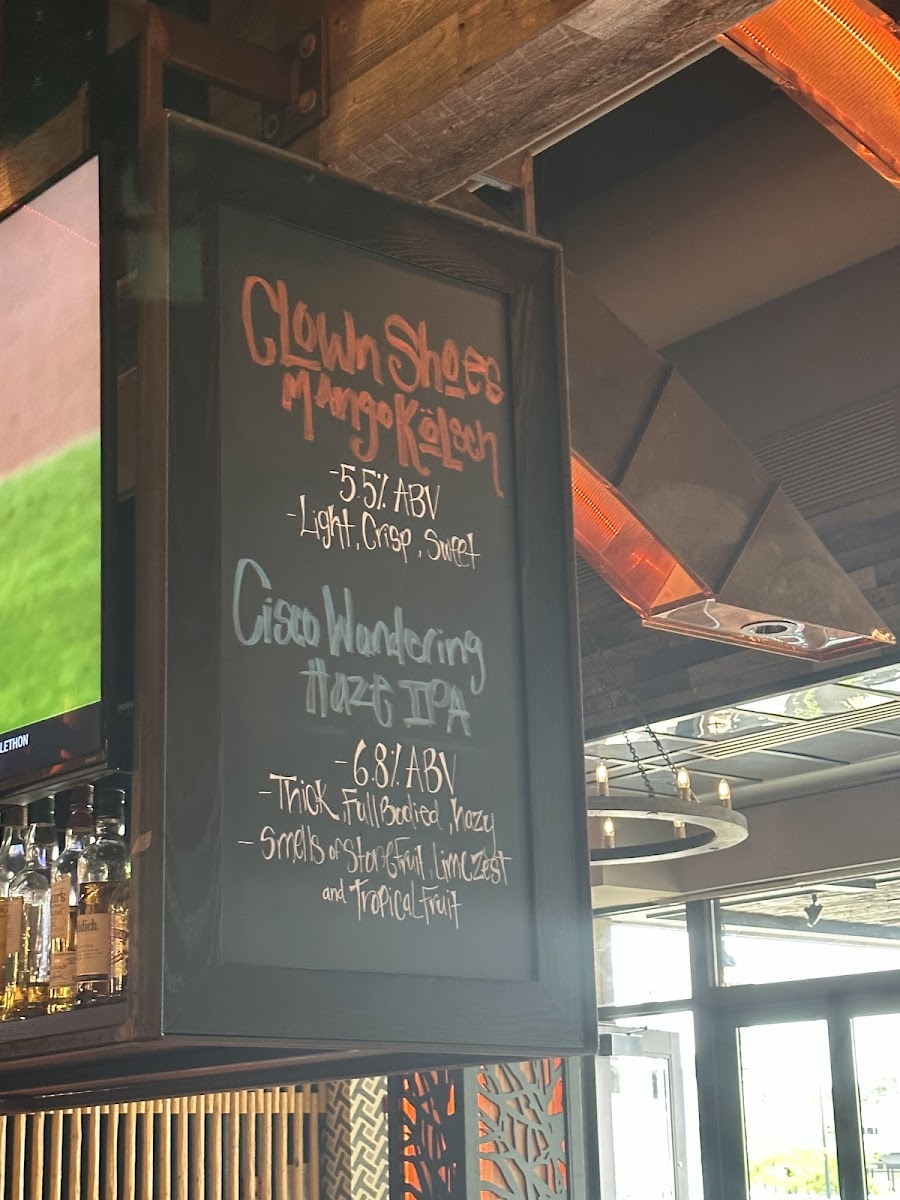 Clown Shoes
Mango Kölsch
-5.5% ABV
-Light, Crisp, Sweet
Cisco Wandering
Haze IPA
-6.8% ABV
-Thick, Full Bodied, hazy
- Smells of Stonefruit, Lime Zest
and Tropical Fruit
LETHON